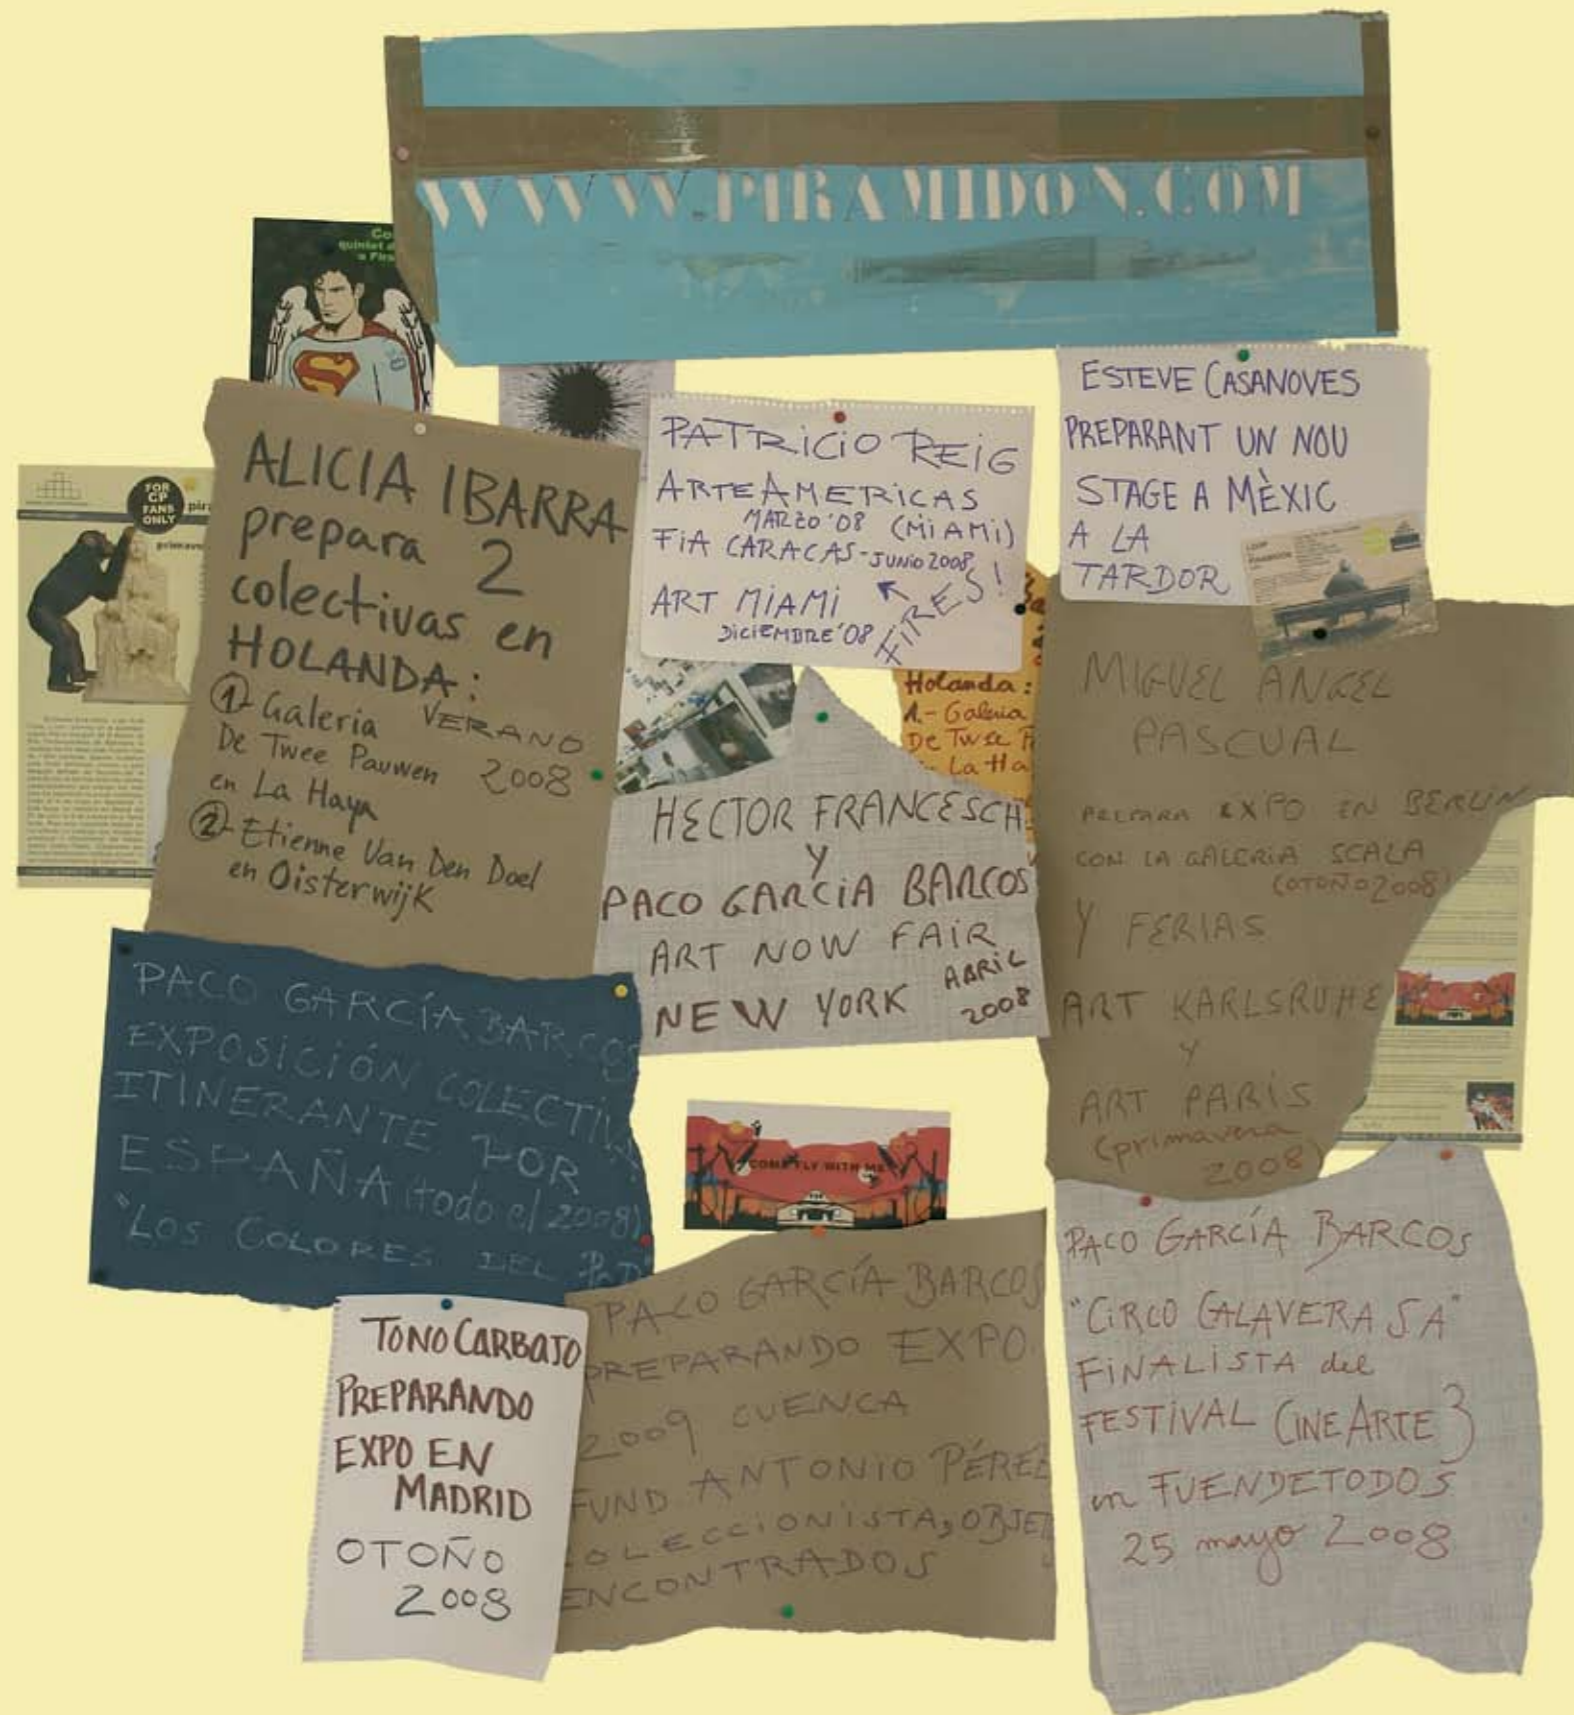 WWW.PIRAMIDON.COM
FOR
CP
FANS
ONLY
ALICIA IBARRA
prepara 2
colectivas en
HOLANDA:
1- Galeria VERANO
De Twee Pauwen 2008
en La Haya
2- Etienne Van Den Doel
en Oisterwijk
PATRICIO REIG
ARTEAMERICAS
MARZO '08 (MIAMI)
FIA CARACAS - JUNIO 2008
ART MIAMI
DICIEMBRE '08
FIRES!
ESTEVE CASANOVES
PREPARANT UN NOU
STAGE A MÈXIC
A LA
TARDOR
Holanda:
1.- Galeria
De Twee
La Ha
HECTOR FRANCESCH
Y
PACO GARCÍA BARCOS
ART NOW FAIR
NEW YORK ABRIL
2008
MIGUEL ANGEL
PASCUAL
PREPARA EXPO EN BERLIN
CON LA GALERIA SCALA
(OTOÑO 2008)
Y FERIAS
ART KARLSRUHE
Y
ART PARIS
(primavera
2008)
PACO GARCÍA BARCOS
EXPOSICIÓN COLECTIVA
ITINERANTE POR
ESPAÑA (todo el 2008)
"LOS COLORES DEL
COME FLY WITH ME
TONO CARBAJO
PREPARANDO
EXPO EN
MADRID
OTOÑO
2008
PACO GARCÍA BARCOS
PREPARANDO EXPO
2009 CUENCA
FUND. ANTONIO PÉREZ
COLECCIONISTA, OBJET
ENCONTRADOS
PACO GARCÍA BARCOS
"CIRCO CALAVERA S A"
FINALISTA del
FESTIVAL CINE ARTE 3
en FUENDETODOS
25 mayo 2008